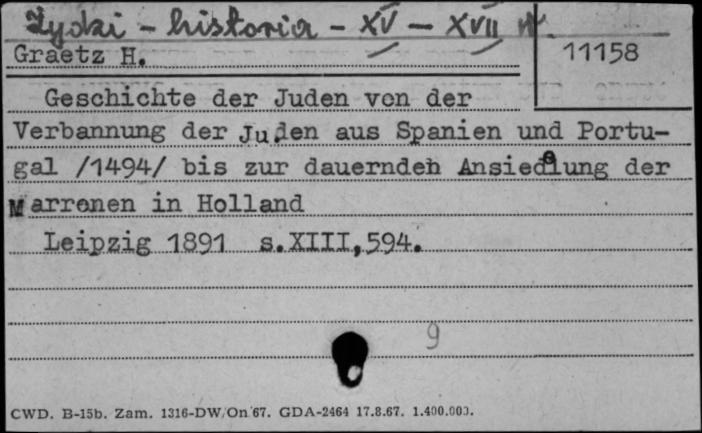 Żydzi - historia - XV - XVII w.
Graetz H.
11158
Geschichte der Juden von der
Verbannung der Juden aus Spanien und Portu-
gal /1494/ bis zur dauernden Ansiedelung der
Marronen in Holland
Leipzig 1891 s.XIII,594.
9
CWD. B-15b. Zam. 1316-DW/On 67. GDA-2464 17.8.67. 1.400.000.